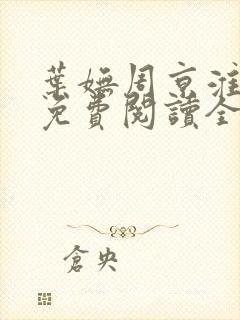 葉嫵周京淮
免費閱讀全
倉央